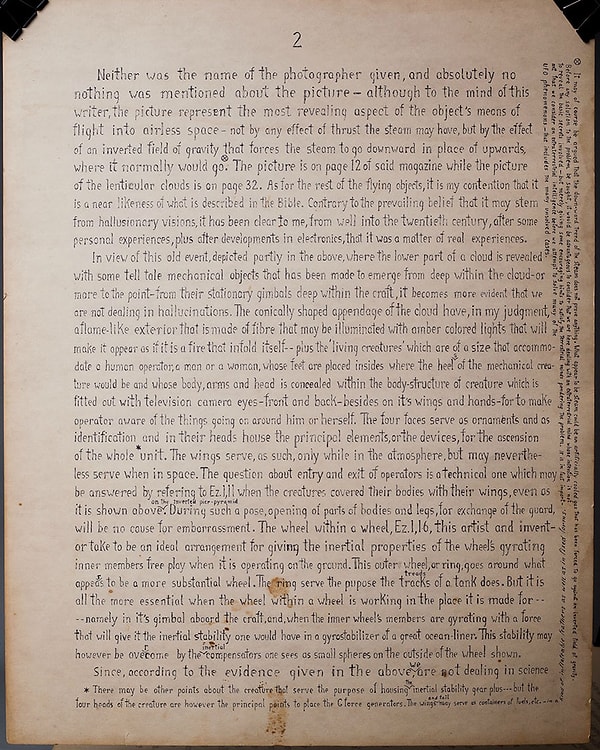 2
Neither was the name of the photographer given, and absolutely no
nothing was mentioned about the picture – although to the mind of this
writer, the picture represent the most revealing aspect of the object's means of
flight into airless space – not by any effect of thrust the steam may have, but by the effect
of an inverted field of gravity that forces the steam to go downward in place of upwards,
where it normally would go.⊗ The picture is on page 12 of said magazine while the picture
of the lenticular clouds is on page 32. As for the rest of the flying objects, it is my contention that it
is a near likeness of what is described in the Bible. Contrary to the prevailing belief that it may stem
from hallusionary visions, it has been clear to me, from well into the twentieth century, after some
personal experiences, plus after developments in electronics, that it was a matter of real experiences.
In view of this old event, depicted partly in the above, where the lower part of a cloud is revealed
with some tell tale mechanical objects that has been made to emerge from deep within the cloud – or
more to the point – from their stationary gimbals deep within the craft, it becomes more evident that we
are not dealing in hallucinations. The conically shaped appendage of the cloud have, in my judgment,
a flame-like exterior that is made of fibre that may be illuminated with amber colored lights that will
make it appear as if it is a fire that infold itself -- plus the 'living creatures' which are of a size that accommo-
date a human operator, a man or a woman, whose feet are placed insides where the heel's of the mechanical crea-
ture would be and whose body, arms and head is concealed within the body-structure of creature which is
fitted out with television camera eyes – front and back – besides on it's wings and hands – for to make
operator aware of the things going on around him or herself. The four faces serve as ornaments and as
identification and in their heads house the principal elements, or the devices, for the ascension
of the whole* unit. The wings serve, as such, only while in the atmosphere, but may neverthe-
less serve when in space. The question about entry and exit of operators is a technical one which may
be answered by refering to Ez.1,11 when the creatures covered their bodies with their wings, even as
it is shown above on the inverted pier-pyramid. During such a pose, opening of parts of bodies and legs, for exchange of the guard,
will be no couse for embarrassment. The wheel within a wheel, Ez.1,16, this artist and invent-
or take to be an ideal arrangement for giving the inertial properties of the wheel's gyrating
inner members free play when it is operating on the ground. This outer wheel, or ring, goes around what
appears to be a more substantial wheel. The ring serve the pupose the treads tracks of a tank does. But it is
all the more essential when the wheel within a wheel is working in the place it is made for --
-- namely in it's gimbal aboard the craft, and, when the inner wheel's members are gyrating with a force
that will give it the inertial stability one would have in a gyrostabilizer of a great ocean-liner. This stability may
however be overcome by the inertial compensators one sees as small spheres on the outside of the wheel shown.
Since, according to the evidence given in the above, we are not dealing in science
* There may be other points about the creature that serve the purpose of housing The inertial stability gear plus --- but the
four heads of the creature are however the principal points to place the G force generators. The wings and tail may serve as containers of fuels, etc.